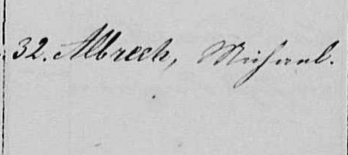 32. Albrech, Michael.